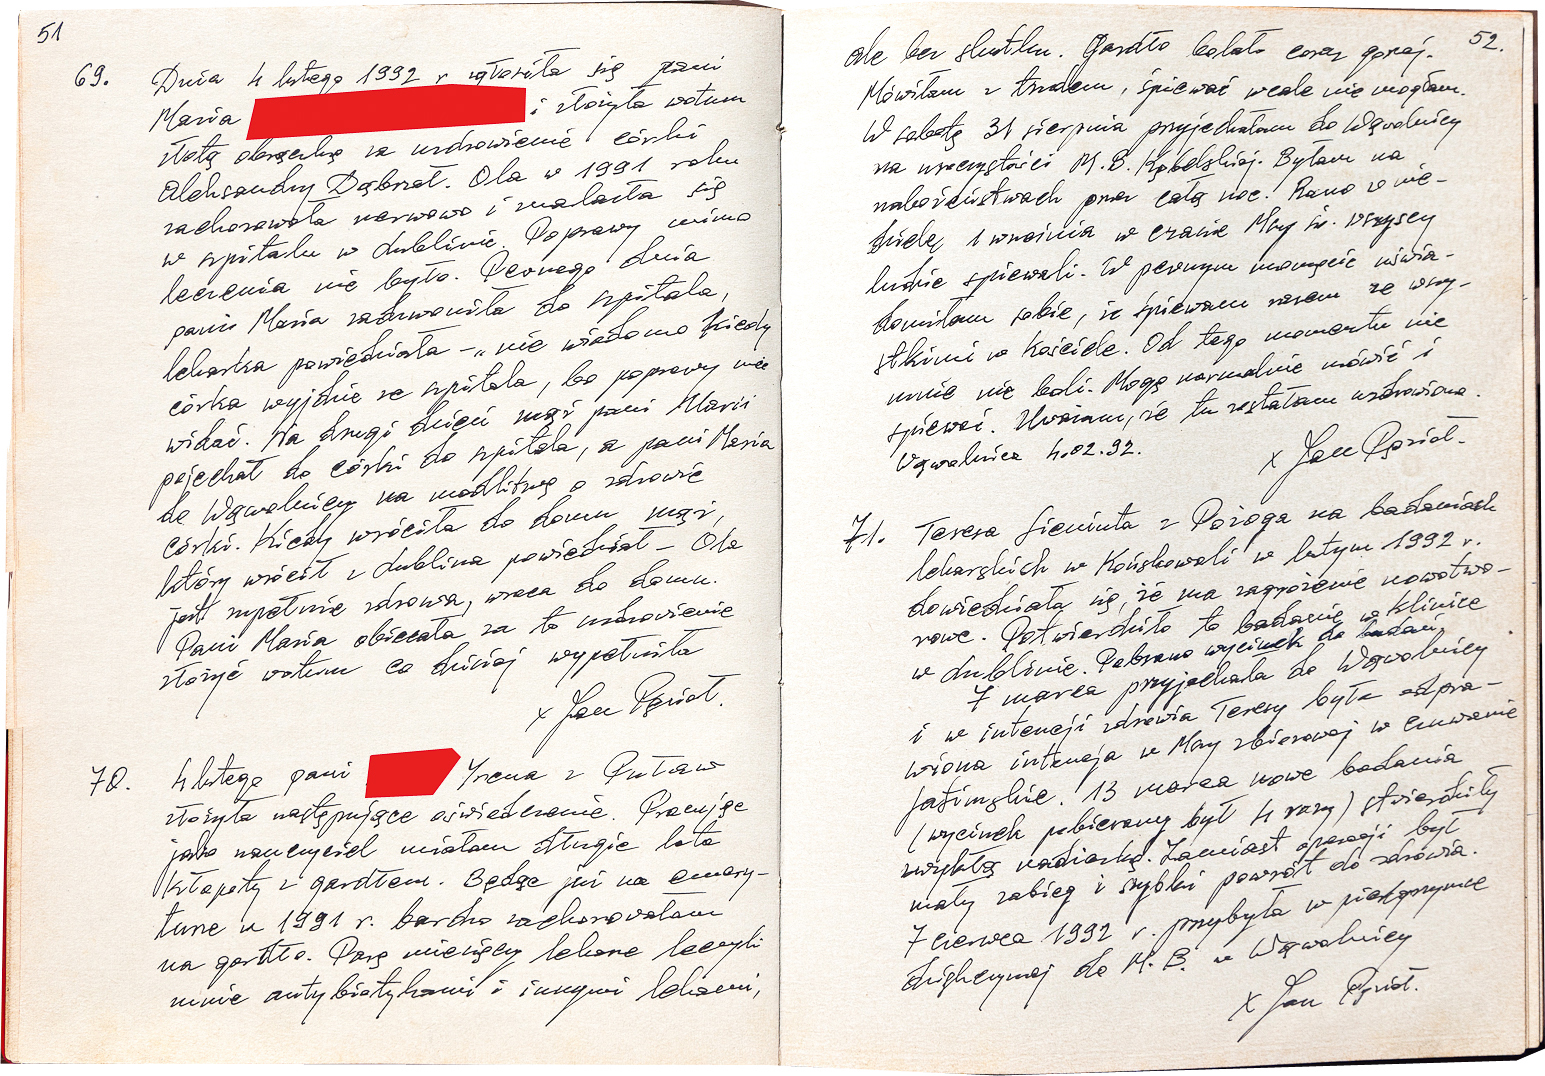 51
69. Dnia 4 lutego 1992 r zgłosiła się pani
Maria i złożyła wotum
złotą obrączkę za uzdrowienie córki
Aleksandry Dąbrzał. Ola w 1991 roku
zachorowała nerwowo i znalazła się
w szpitalu w Lublinie. Poprawy mimo
leczenia nie było. Pewnego dnia
pani Maria zadzwoniła do szpitala,
lekarka powiedziała – „nie wiadomo kiedy
córka wyjdzie ze szpitala, bo poprawy nie
widać. Na drugi dzień mąż pani Marii
pojechał do córki do szpitala, a pani Maria
do Wąwolnicy na modlitwę o zdrowie
córki. Kiedy wróciła do domu mąż,
który wrócił z Lublina powiedział – Ola
jest zupełnie zdrowa, wraca do domu.
Pani Maria obiecała za to uzdrowienie
złożyć wotum co dzisiaj wypełniła
x Jan Pęzioł.
70. 4 lutego pani Irena z Puław
złożyła następujące oświadczenie. Pracując
jako nauczyciel miałam długie lata
kłopoty z gardłem. Będąc już na emery-
turze w 1991 r. bardzo zachorowałam
na gardło. Parę miesięcy lekarze leczyli
mnie antybiotykami i innymi lekami,
52.
ale bez skutku. Gardło bolało coraz gorzej.
Mówiłam z trudem, śpiewać wcale nie mogłam.
W sobotę 31 sierpnia przyjechałam do Wąwolnicy
na uroczystości M. B. Kębelskiej. Byłam na
nabożeństwach przez całą noc. Rano w nie-
dzielę 1 września w czasie Mszy św. wszyscy
ludzie śpiewali. W pewnym momencie uświa-
domiłam sobie, że śpiewam razem ze wszy-
stkimi w Kościele. Od tego momentu nic
mnie nie boli. Mogę normalnie mówić i
śpiewać. Uważam, że tu zostałam uzdrowiona.
Wąwolnica 4.02.92. x Jan Pęzioł.
71. Teresa Sieminta z Pożoga na badaniach
lekarskich w Końskowoli w lutym 1992 r.
dowiedziała się, że ma zagrożenie nowotwo-
rowe. Potwierdziło to badanie w klinice
w Lublinie. Pobrano wycinek do badań.
7 marca przyjechała do Wąwolnicy
i w intencji zdrowia Teresy była odpra-
wiona intencja w Mszy zbiorowej w Ewanie
fatimskie. 13 marca nowe badania
(wycinek pobierany był 4 razy) stwierdziły
zwykłą nadżerkę. Zamiast operacji był
mały zabieg i szybki powrót do zdrowia.
7 czerwca 1992 r. przybyła w pielgrzymce
dziękczynnej do M. B. w Wąwolnicy
x Jan Pęzioł.